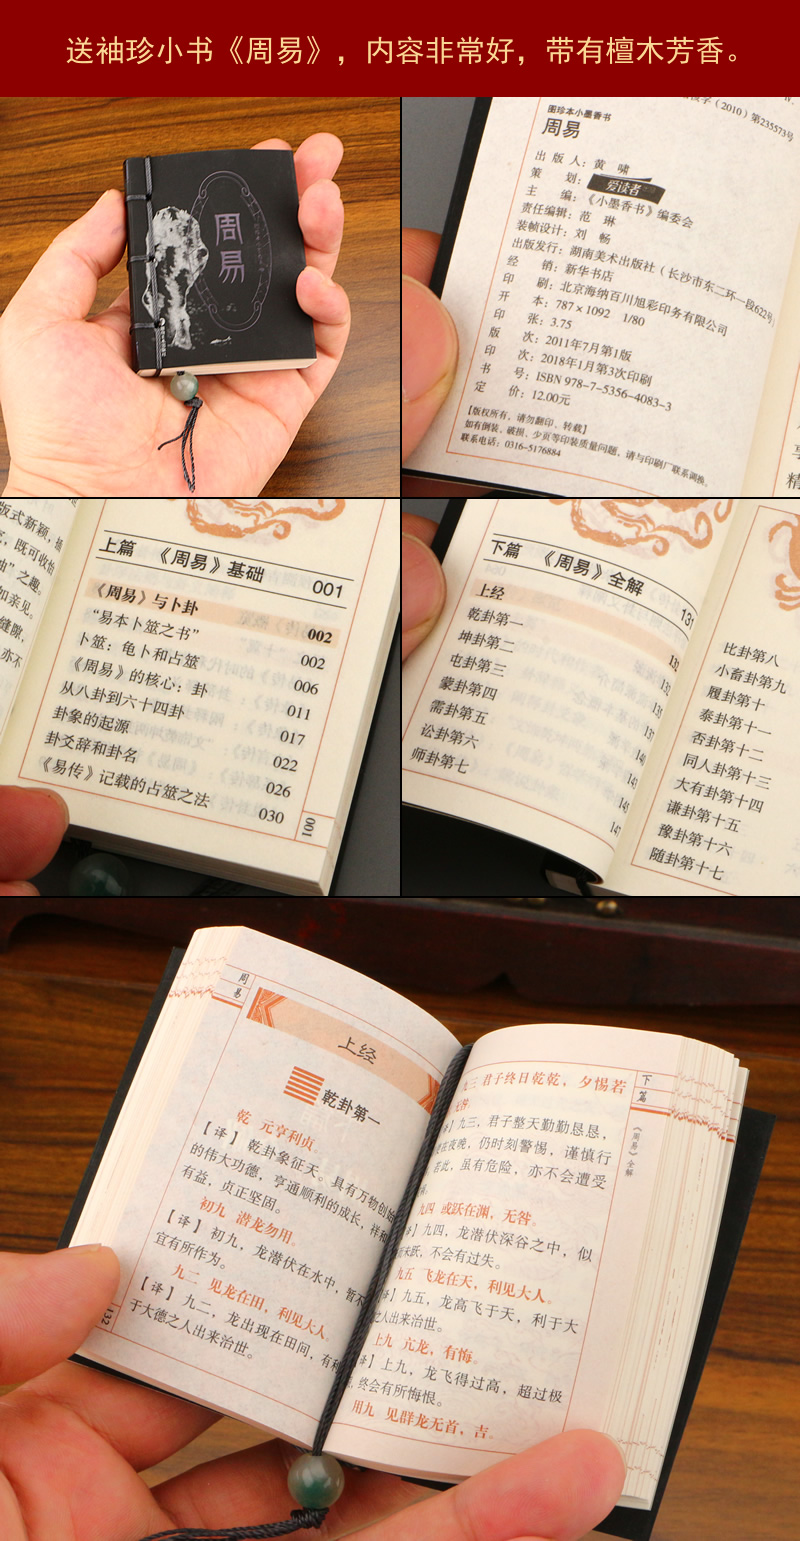 送袖珍小书《周易》，内容非常好，带有檀木芳香。
周易
字（2010）第235573号
图珍本小墨香书
周易
出版人：黄 啸
策 划：爱读者
主 编：《小墨香书》编委会
责任编辑：范 琳
装帧设计：刘 畅
出版发行：湖南美术出版社（长沙市东二环一段622号）
经 销：新华书店
印 刷：北京海纳百川旭彩印务有限公司
开 本：787×1092 1/80
印 张：3.75
版 次：2011年7月第1版
印 次：2018年1月第3次印刷
书 号：ISBN 978-7-5356-4083-3
定 价：12.00元
【版权所有，请勿翻印、转载】
如有倒装、破损、少页等印装质量问题，请与印刷厂联系调换。
联系电话：0316-5176884
版式新颖，
，既可收
”之趣。
如亲见。
缝隙，
亦不
上篇 《周易》基础 001
《周易》与卜卦 002
“易本卜筮之书” 002
卜筮：龟卜和占筮 006
《周易》的核心：卦 011
从八卦到六十四卦 017
卦象的起源 022
卦爻辞和卦名 026
《易传》记载的占筮之法 030
001
下篇 《周易》全解 131
上经
乾卦第一
坤卦第二
屯卦第三
蒙卦第四
需卦第五
讼卦第六
师卦第七
比卦第八
小畜卦第九
履卦第十
泰卦第十一
否卦第十二
同人卦第十三
大有卦第十四
谦卦第十五
豫卦第十六
随卦第十七
周易
上经
乾卦第一
乾 元亨利贞
【译】乾卦象征天。具有万物创始
的伟大功德，亨通顺利的成长，祥和
有益，贞正坚固。
初九 潜龙勿用。
【译】初九，龙潜伏在水中，暂不
宜有所作为。
九二 见龙在田，利见大人。
【译】九二，龙出现在田间，有利
于大德之人出来治世。
132
下篇
《周易》全解
九三 君子终日乾乾，夕惕若
九三，君子整天勤勤恳恳，
在夜晚，仍时刻警惕，谨慎行
若此，虽有危险，亦不会遭受
九四 或跃在渊，无咎。
【译】九四，龙潜伏深谷之中，似
未跃，不会有过失。
九五 飞龙在天，利见大人。
【译】九五，龙高飞于天，利于大
之人出来治世。
上九 亢龙，有悔。
【译】上九，龙飞得过高，超过极
，终会有所悔恨。
用九 见群龙无首，吉。